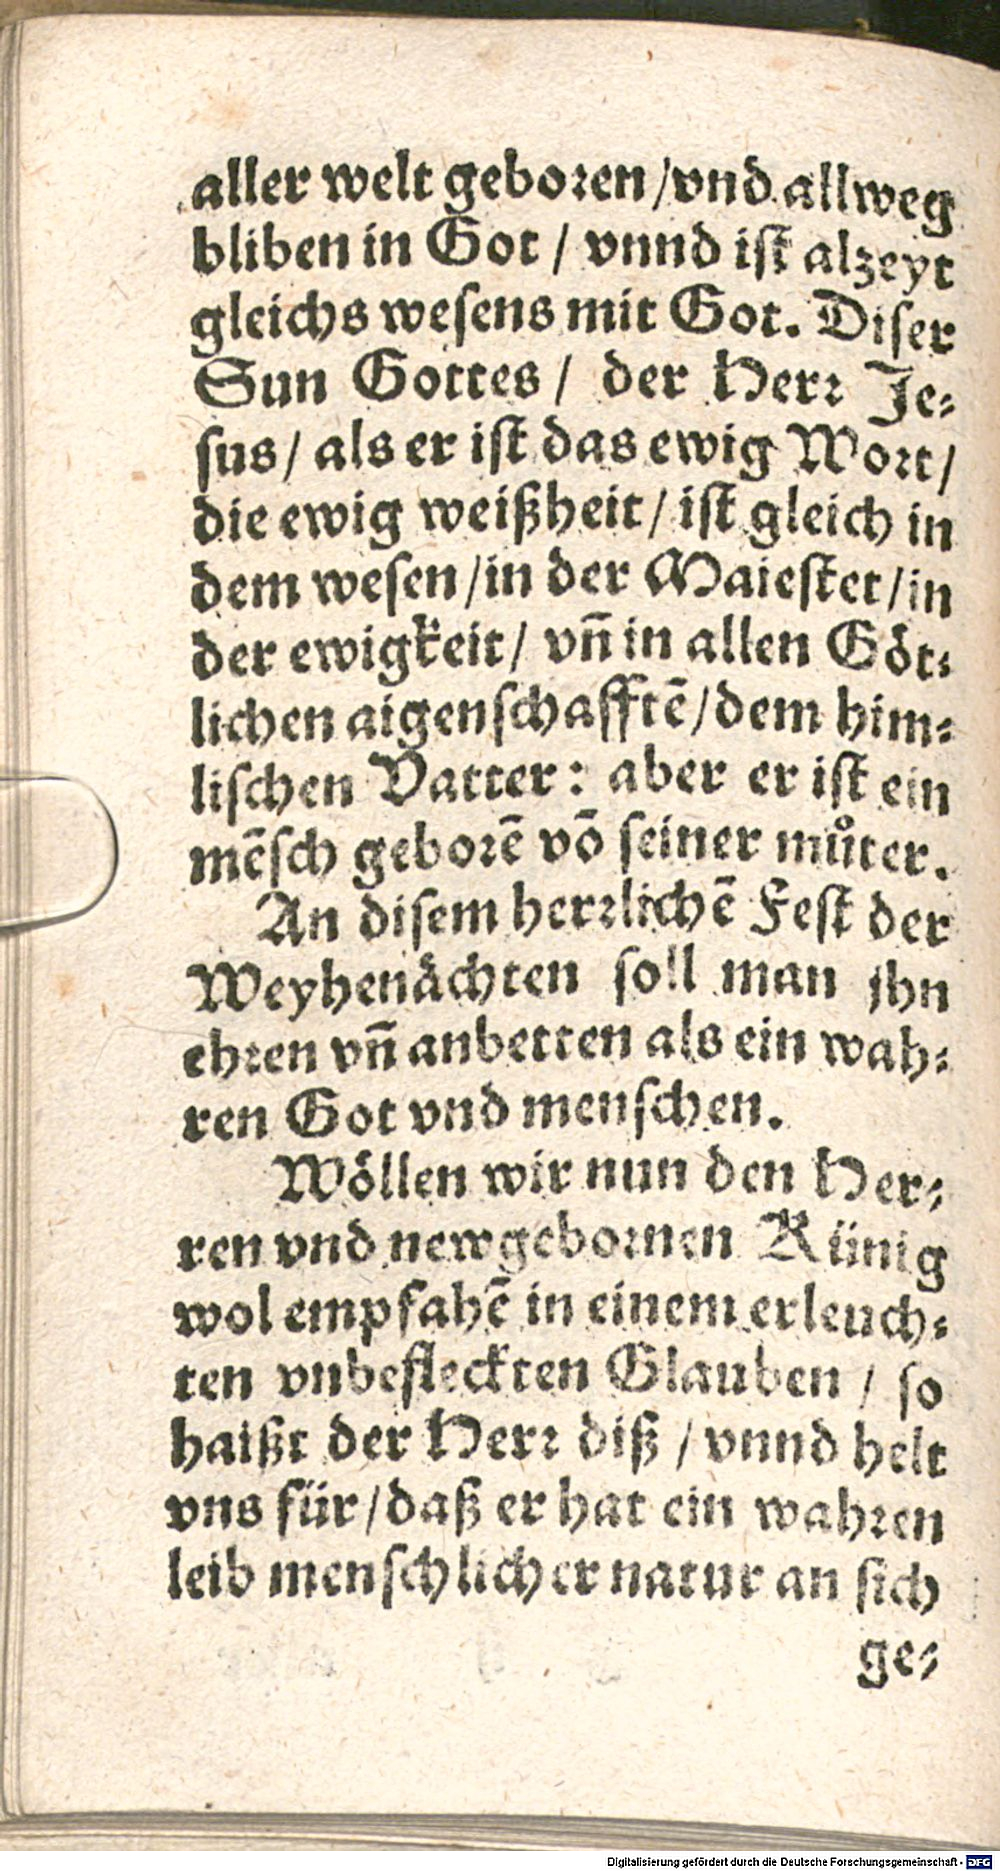 aller welt geboren / vnd allweg
bliben in Got / vnnd ist alzeyt
gleichs wesens mit Got. Diser
Sun Gottes / der Herr Je⸗
sus / als er ist das ewig Wort /
die ewig weißheit / ist gleich in
dem wesen / in der Maiestet / in
der ewigkeit / vn̄ in allen Göt⸗
lichen aigenschafftē / dem him⸗
lischen Vatter: aber er ist ein
mēsch geborē vō seiner můter.
An disem herrlichē Fest der
Weyhenächten soll man jhn
ehren vn̄ anbetten als ein wah⸗
ren Got vnd menschen.
Wöllen wir nun den Her⸗
ren vnd newgebornen Künig
wol empfahē in einem erleuch⸗
ten vnbefleckten Glauben / so
haißt der Herr diß / vnnd helt
vns für / daß er hat ein wahren
leib menschlicher natur an sich
ge⸗
Digitalisierung gefördert durch die Deutsche Forschungsgemeinschaft - DFG